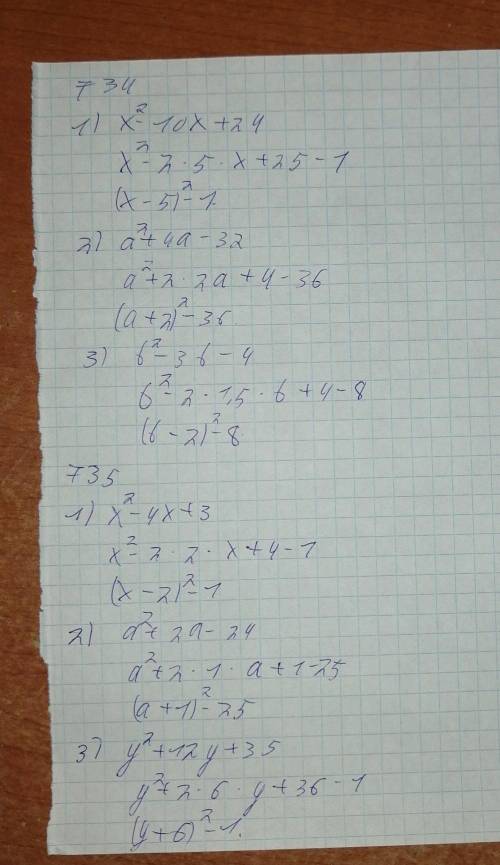 734
1) x² - 10x + 24
x² - 2 · 5 · x + 25 - 1
(x - 5)² - 1.
2) a² + 4a - 32
a² + 2 · 2a + 4 - 36
(a + 2)² - 36.
3) b² - 3b - 4
b² - 2 · 1,5 · b + 4 - 8
(b - 2)² - 8.
735
1) x² - 4x + 3
x² - 2 · 2 · x + 4 - 1
(x - 2)² - 1
2) a² + 2a - 24
a² + 2 · 1 · a + 1 - 25
(a + 1)² - 25
3) y² + 12y + 35
y² + 2 · 6 · y + 36 - 1
(y + 6)² - 1.